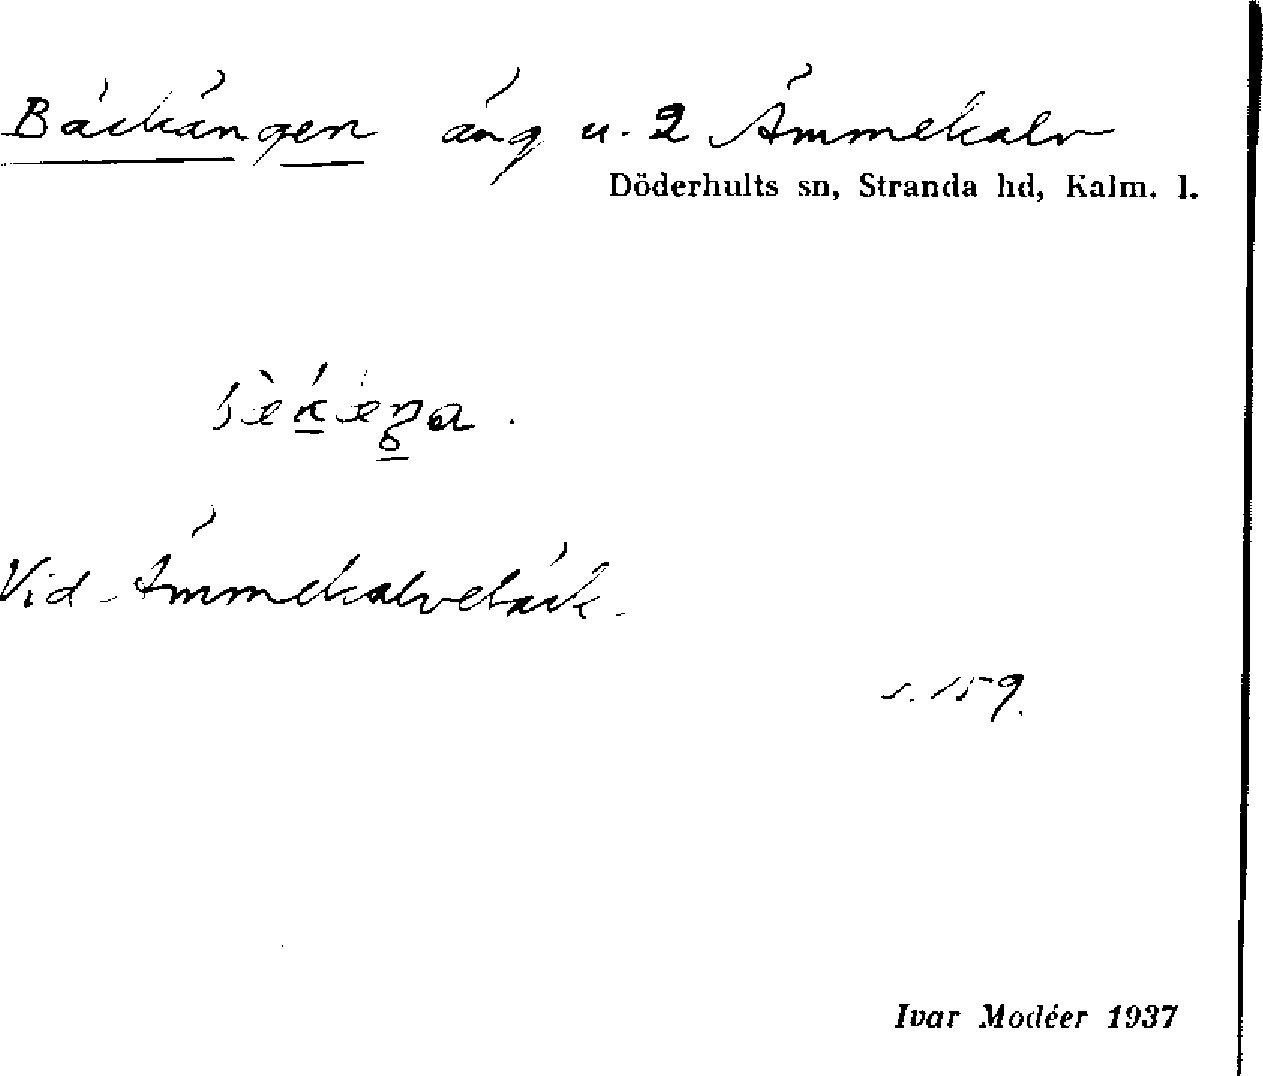 Bäckängen äng u. 2 Ämmekalv
Döderhults sn, Stranda hd, Kalm. l.
Vid Ämmekalvebäck.
s. 159.
Ivar Modéer 1937